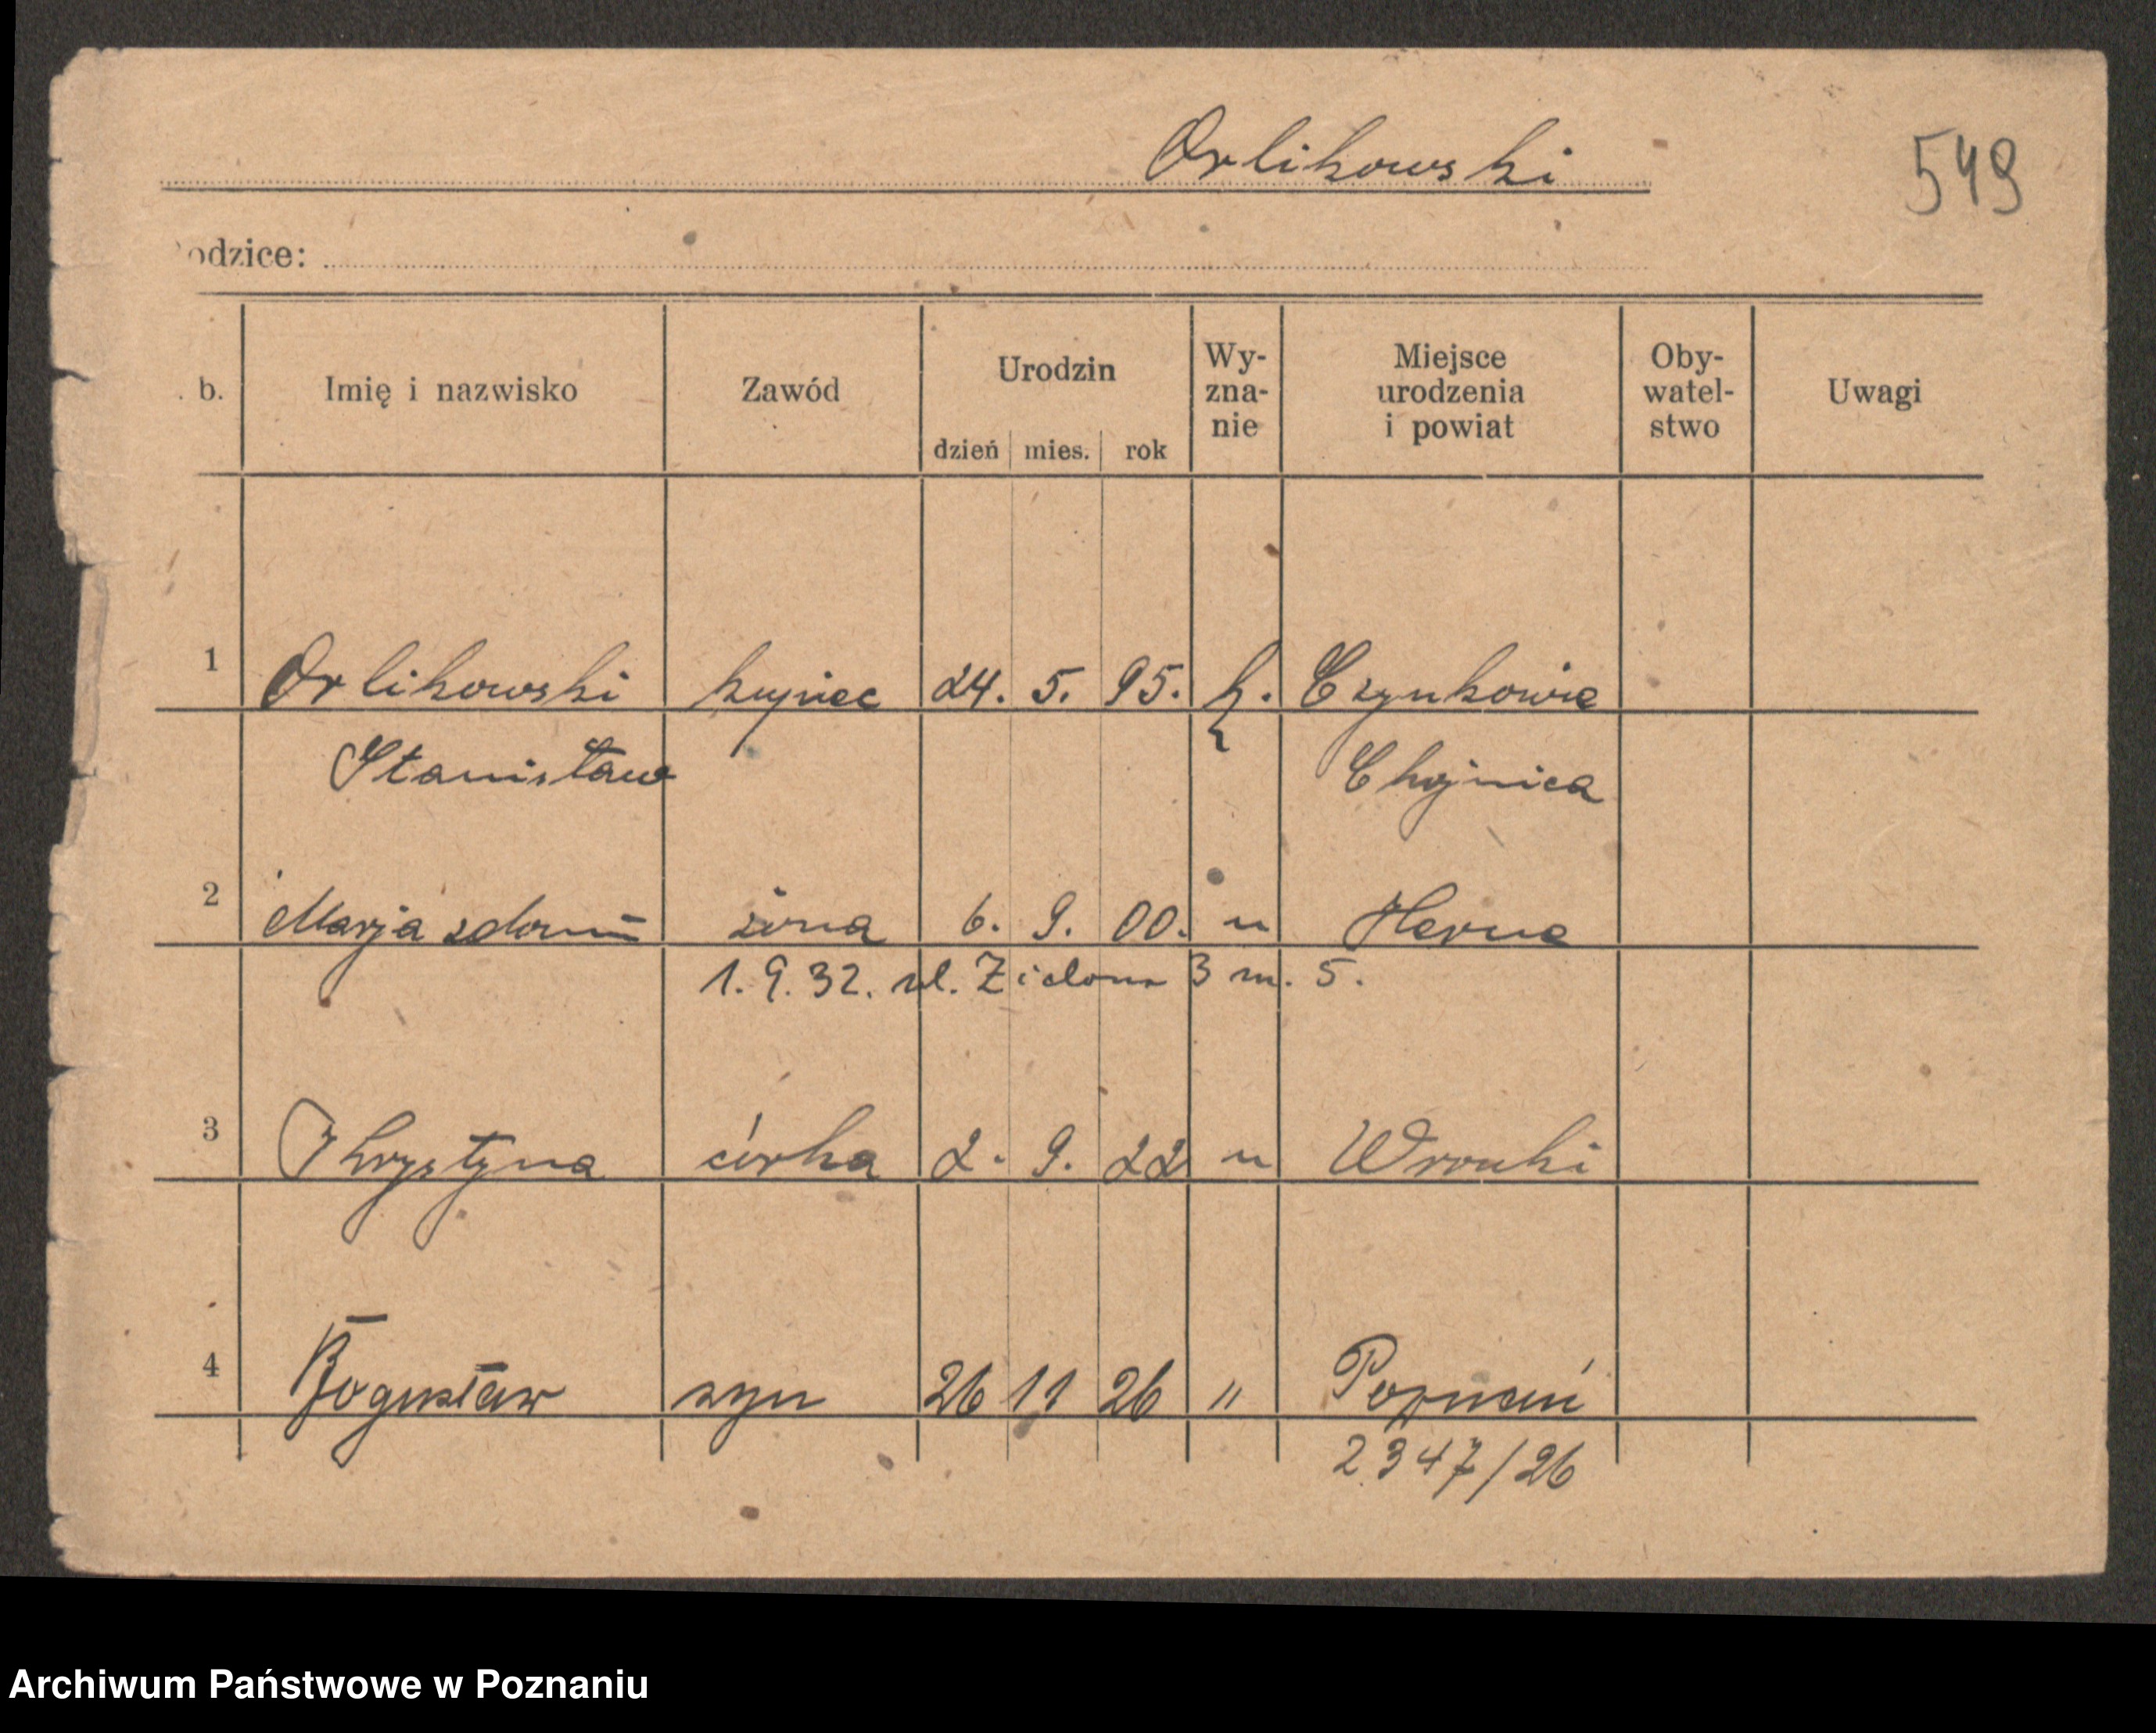 Orlikowski
549
odzice:
b.
Imię i nazwisko
Zawód
Urodzin
dzień mies. rok
Wy-
zna-
nie
Miejsce
urodzenia
i powiat
Oby-
watel-
stwo
Uwagi
1 Orlikowski kupiec 24. 5. 95. k.
Stanisław Chojnica
2 Marja z dom żona 6. 9. 00. " Herne
1. 9. 32. ul. Zielona 3 m. 5.
3 Krystyna córka 2. 9. 22 " Wronki
4 Bogusław syn 26 11 26 " Poznań
2347/26
Archiwum Państwowe w Poznaniu